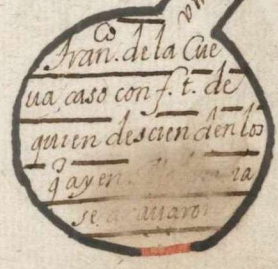 Fran.co de la Cue
va, casó con f. t. de
quien descienden los
q̃ ay en
se acavaron